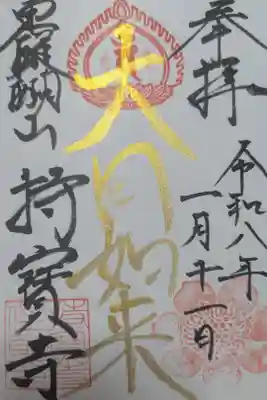 奉拝
令和八年
一月十一日
大日如来
山 持寶寺